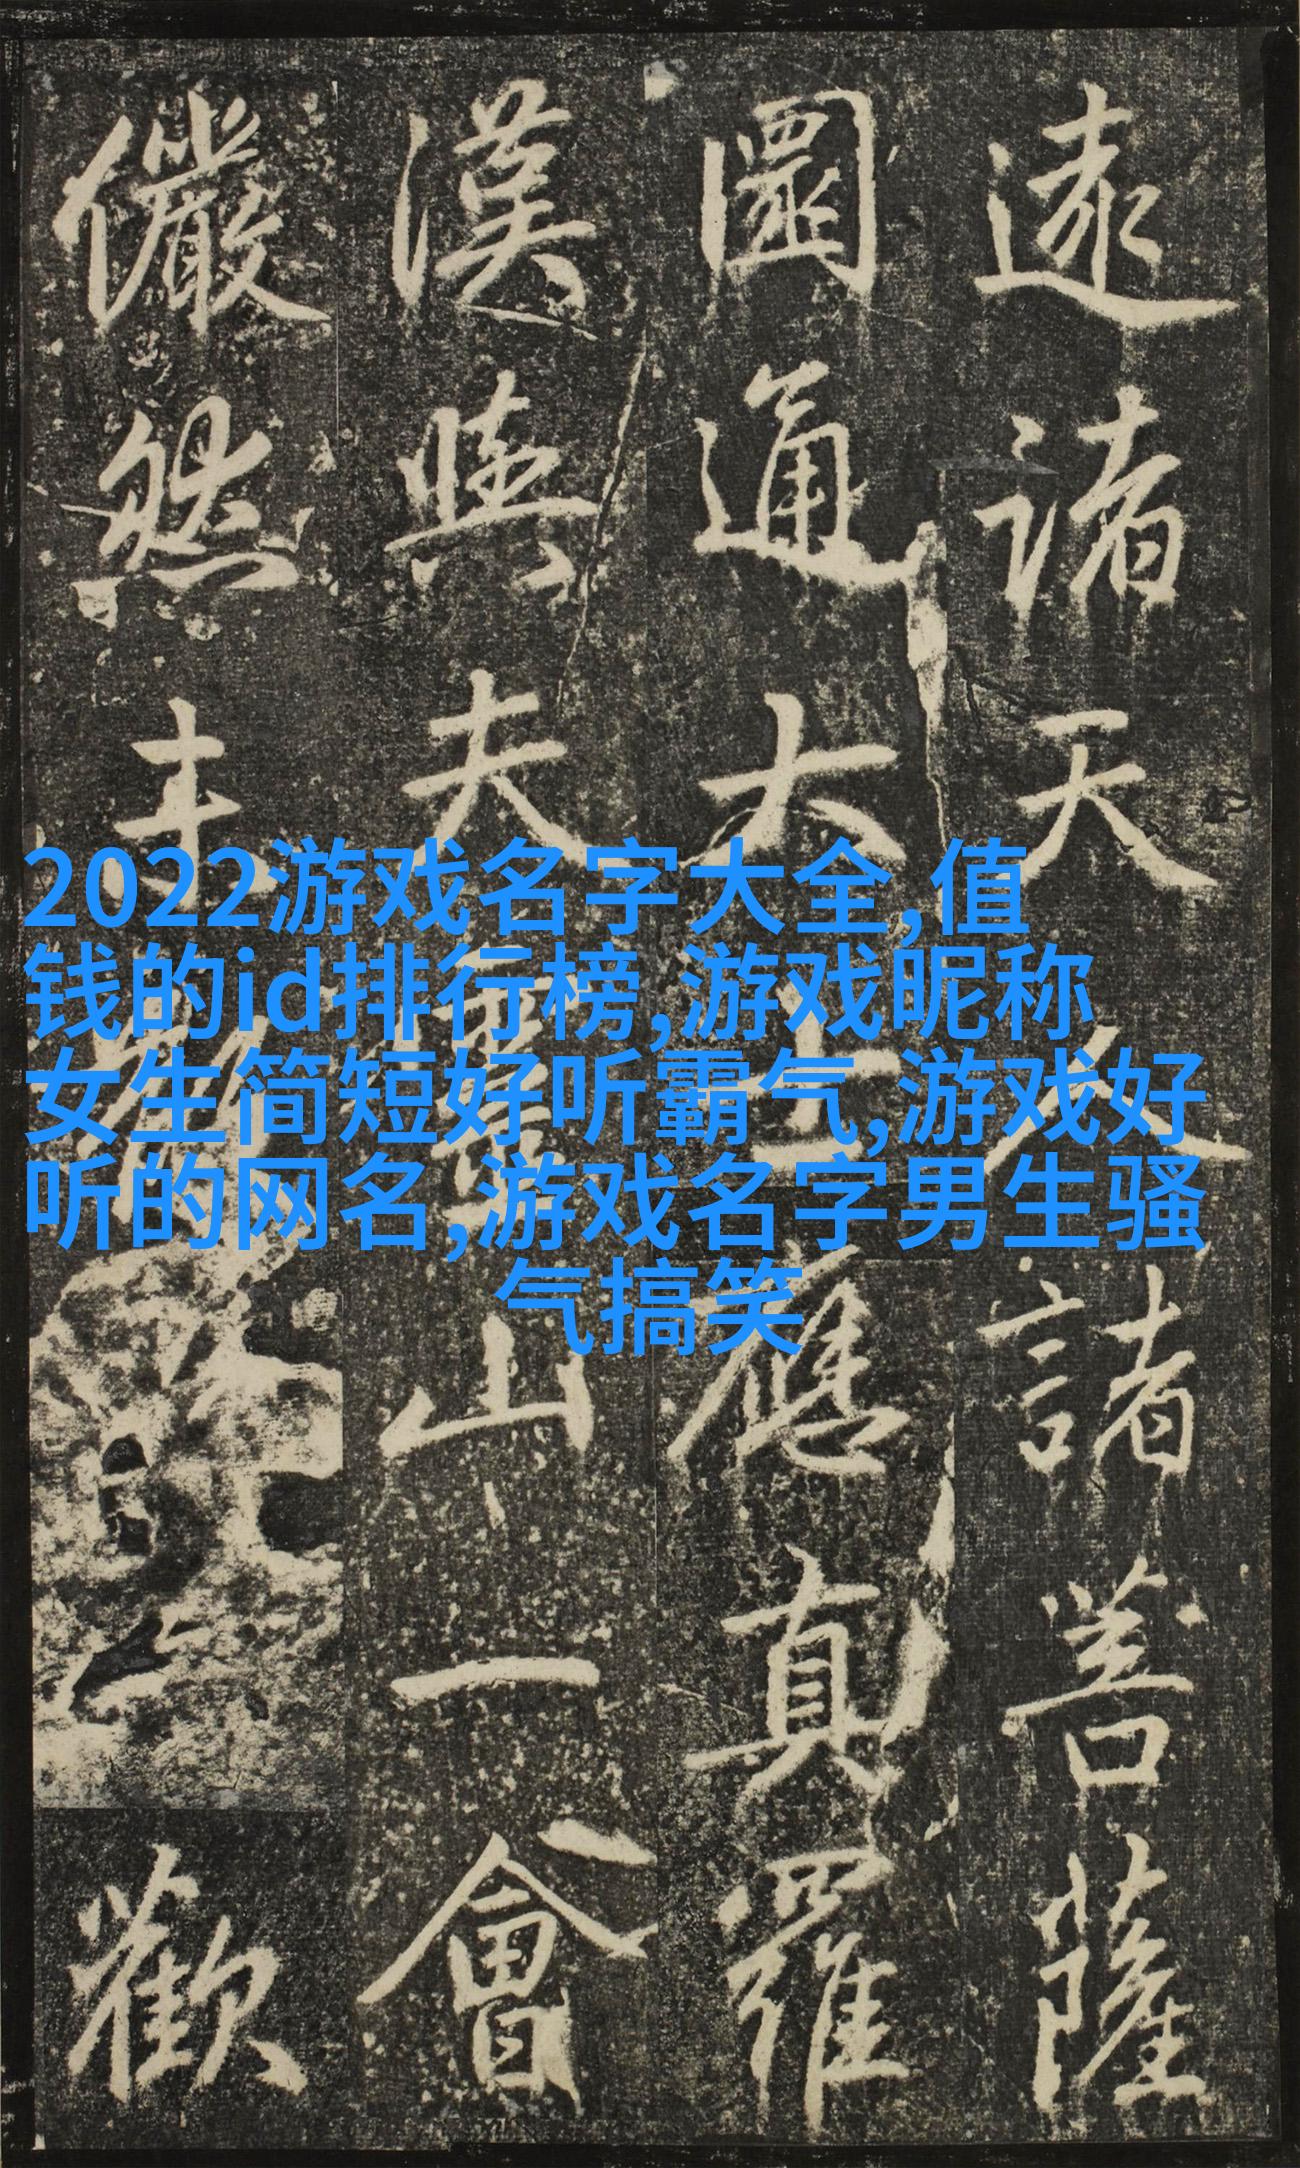 2022游戏名字大全,值
钱的id排行榜,游戏昵称
女生简短好听霸气,游戏好
听的网名,游戏名字男生骚
气搞笑
遠諸天人諸菩薩
圓通大士應真羅
漢與夫靈山一會
儼然未散歡